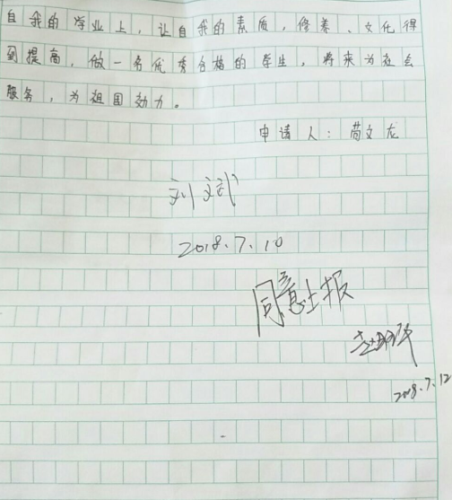 自我的学业上，让自我的素质，修养、文化得
到提高，做一名优秀合格的学生，将来为社会
服务，为祖国効力。
申请人：苟文龙
刘斌
2018.7.10
同意上报
2018.7.12